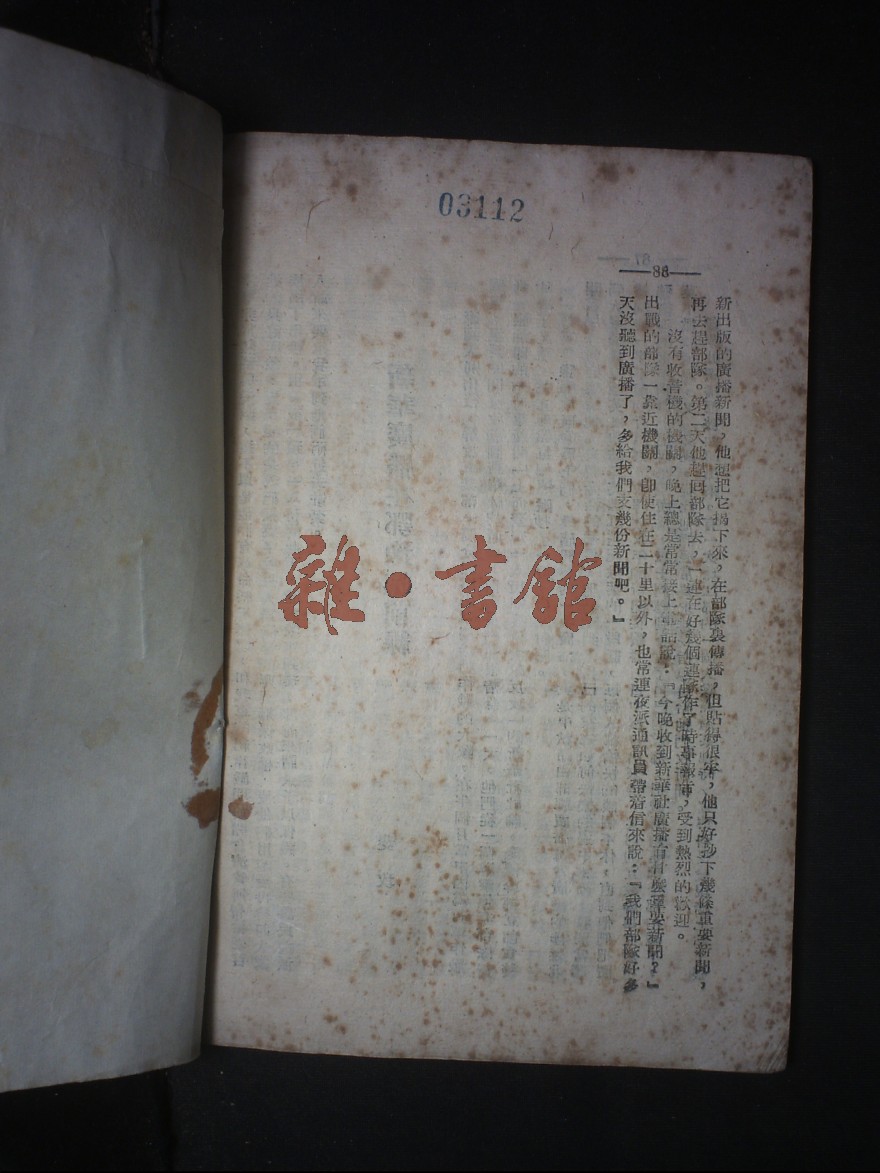 03112
——88——
新出版的廣播新聞，他想把它揭下來，在部隊裏傳播，但貼得很牢，他只好抄下幾條重要新聞，
再去趕部隊。第二天他趕回部隊去，一連在好幾個連隊作了時事報吿，受到熱烈的歡迎。
沒有收音機的機關，晚上總是常常接上電話說：『今晚收到新華社廣播有什麽重要新聞？』
出戰的部隊一靠近機關，卽使住在二十里以外，也常連夜派通訊員帶着信來說：『我們部隊好多
天沒聽到廣播了，多給我們支幾份新聞吧。』
雜·書館